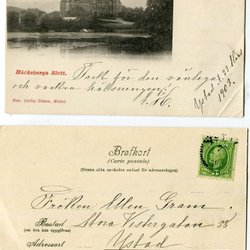 Häckeberga Slott.
Tack för den vänliga
och vackra hälsningen!
Ystad d. 23
1903.
Foto. Carling Nelsen, Malmö.
Brefkort
(Carte postale)
(Denna sida användes endast för adresseringen)
Fröken Ellen Gram.
Bostad Stora Vestergatan
(om den kan uppgifvas)
Adressort Ystad
5